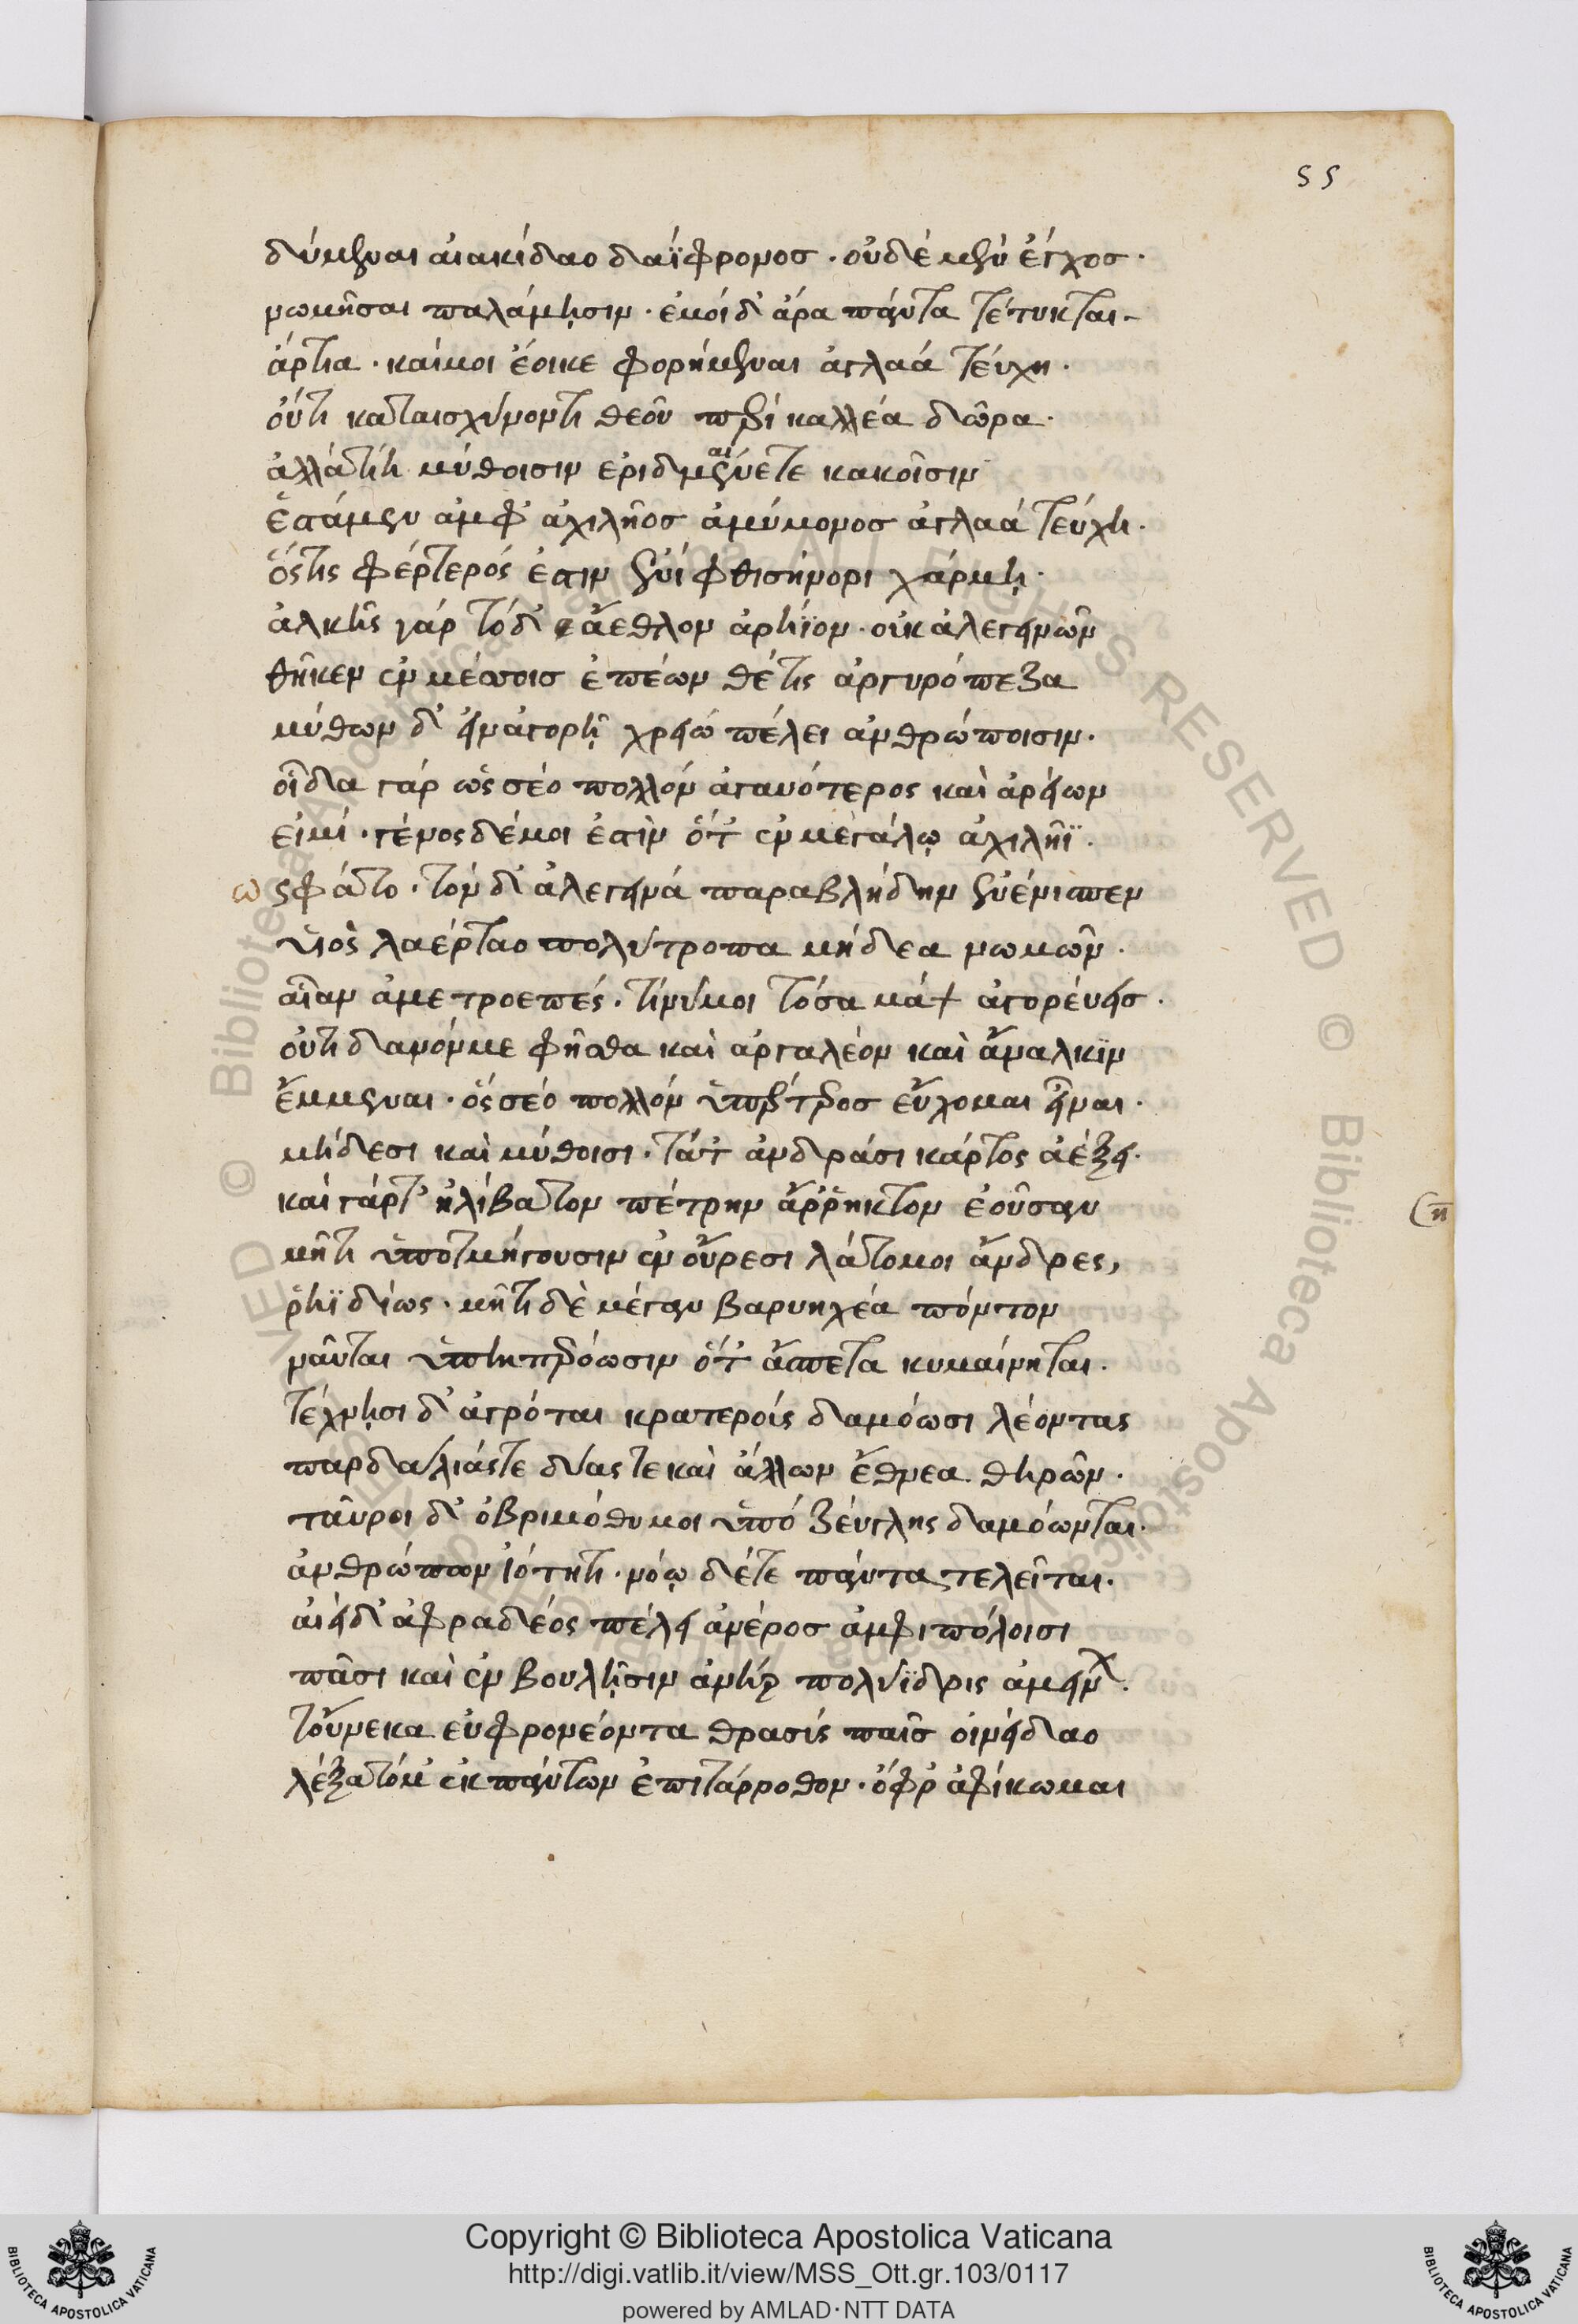 55
δύμεναι αἰακίδαο δαΐφρονοσ · οὐδέ μεν ἔγχοσ ·
νωμῆσαι παλάμῃσιν · ἐμοί δ' ἄρα πάντα τέτυκται –
ἄρτια · καίμοι ἔοικε φορήμεναι ἀγλαά τεύχη ·
οὔτι καταισχύνοντι θεοῦ περί καλλέα δῶρα ·
ἀλλάτίη μύθοισιν ἐριδμαίνετε κακοῖσιν
ἕσταμεν ἀμφ' ἀχιλῆοσ ἀμύμονοσ ἀγλαά τεύχη ·
ὅστις φέρτερός ἐστιν ἐνί φθισήνορι χάρμῃ ·
ἀλκῆς γάρ τόδ' ἄεθλον ἀρήϊον · οὐκ ἀλεγεινῶν
θῆκεν ἐν μέσσοισ ἐπέων θέτις ἀργυρόπεζα
μύθων δ' εἰν ἀγορῇ χρειώ πέλει ἀνθρώποισιν ·
οἶδα γάρ ὡς σέο πολλόν ἀγαυότερος καὶ ἀρείων
εἰμί · γένος δέμοι ἐστὶν ὅτ' ἐν μεγάλῳ ἀχιλῆϊ ·
ως φάτο · τόν δ' ἀλεγεινά παραβλήδην ἐνένιπεν
υἱὸς λαέρταο πολύτροπα μήδεα νωμῶν ·
αἶαν ἀμετροεπές · τίνύμοι τόσα μάτ ἀγορεύεισ ·
οὐτιδανόνμε φῆσθα καὶ ἀργαλέον καὶ ἄναλκιν
ἔμμεναι · ὅς σέο πολλόν ὑπέρτεροσ εὔχομαι εἶναι ·
μήδεσι καὶ μύθοισι · τάτ' ἀνδράσι κάρτος ἀέξει ·
καί γάρτ' ἠλίβατον πέτρην ἄρρηκτον ἐοῦσαν
μῆτι ὑποτμήγουσιν ἐν οὔρεσι λάτομοι ἄνδρες,
ῥηϊδίως · μῆτιδὲ μέγαν βαρυηχέα πόντον
ναῦται ὑπεκπερόωσιν ὅτ' ἄσπετα κυμαίνηται ·
τέχνῃσι δ' ἀγρόται κρατερούς δαμόωσι λέοντας
παρδαλιάστε σύαςτε καὶ ἄλλων ἔθνεα θηρῶν ·
ταῦροι δ' ὀβριμόθυμοι ὑπό ζεύγλης δαμόωνται ·
ἀνθρώπων ἰότητι · νόῳ δέτε πάντα τελεῖται ·
ἀιεὶδ' ἀφραδέος πέλει ἀνέροσ ἀμφιπόλοισι
πᾶσι καὶ ἐν βουλῇσιν ἀνήρ πολύϊδρις ἀμείνω ·
τοὔνεκα εὐφρονέοντα θρασύς παῖσ οἰνείδαο
λέξατόμ' ἐκ πάντων ἐπιτάρροθον · ὄφρ' ἀφίκωμαι
Copyright © Biblioteca Apostolica Vaticana
http://digi.vatlib.it/view/MSS_Ott.gr.103/0117
powered by AMLAD·NTT DATA
BIBLIOTECA APOSTOLICA VATICANA
BIBLIOTECA APOSTOLICA VATICANA